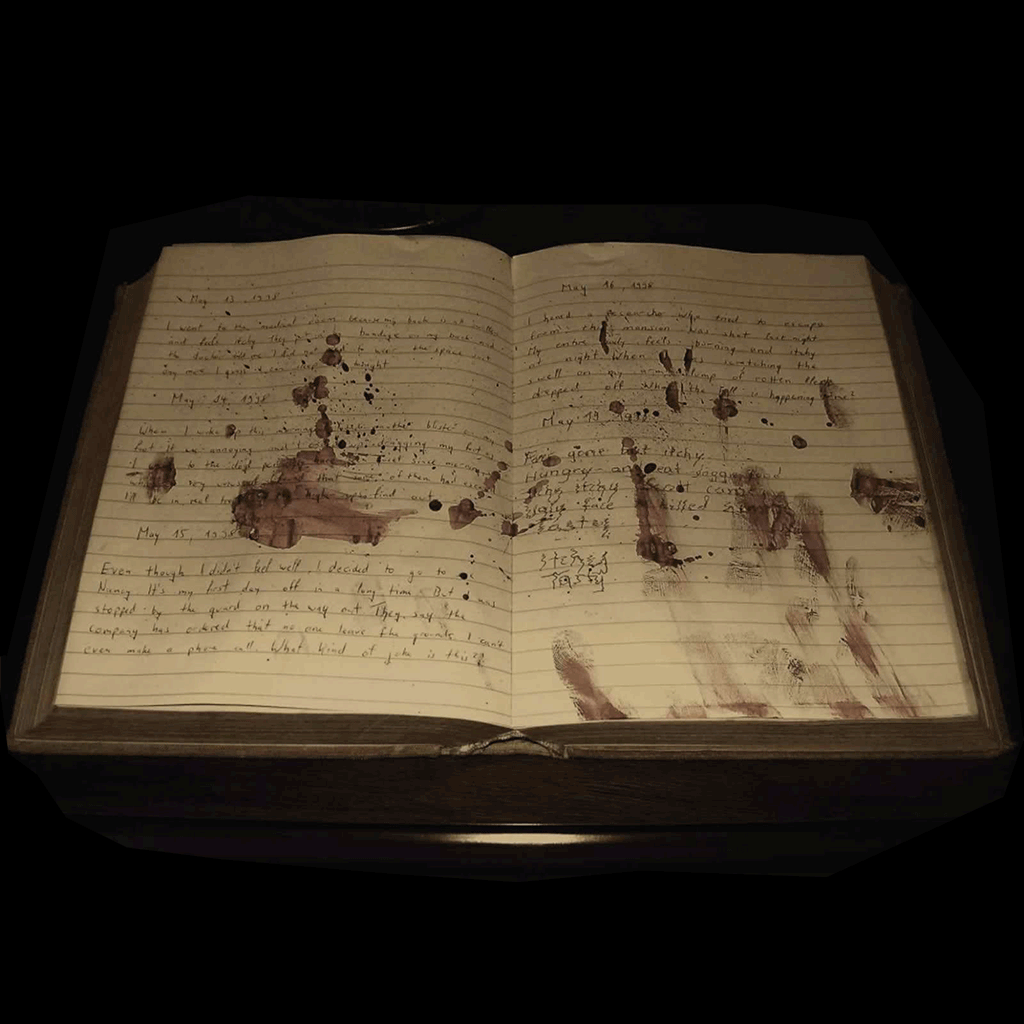 May 13, 1998
I went to the medical room because my back is all swollen
and feels itchy They put a bandage on my back and
the doctor told me I did not need to wear the space suit
any more I guess I can sleep tonight
May 14, 1998
When I woke up this morning another blister on my
foot it was annoying and I dragging my foot as
I to the dog pen quiet since morning
very of them had escaped
I'll be in real trouble if the higher-ups find out
May 15, 1998
Even though I didn't feel well, I decided to go to see
Nancy It's my first day off in a long time. But I was
stopped by the guard on the way out They say the
company has ordered that no one leave the grounds. I can't
even make a phone call. What kind of joke is this?
May 16, 1998
I heard a researcher who tried to escape
from this mansion was shot last night
My entire body feels burning and itchy
at night When I was scratching the
swell on my arm, a lump of rotten flesh
dropped off What the is happening me?
May 19, 1998
Fever gone but itchy.
Hungry and eat doggy food
itchy itchy Scott came
Ugly face killed
Tastey